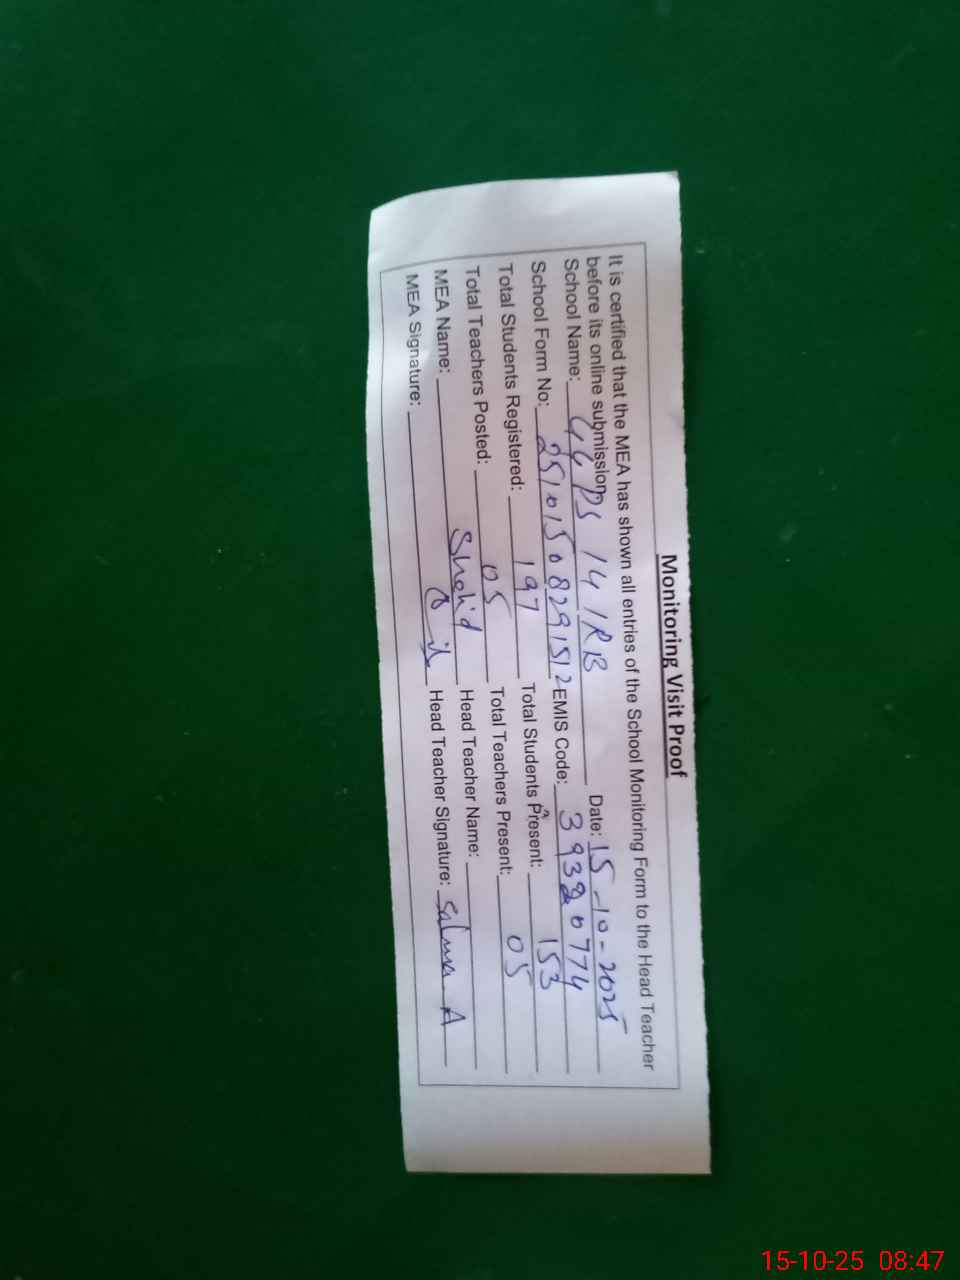 Monitoring Visit Proof
It is certified that the MEA has shown all entries of the School Monitoring Form to the Head Teacher
before its online submission
School Name: GGPS 14 1RB Date: 15-10-2025
School Form No: 25101508291512 EMIS Code: 39320774
Total Students Registered: 197 Total Students Present: 153
Total Teachers Posted: 05 Total Teachers Present: 05
MEA Name: Shahid Head Teacher Name:
MEA Signature: Head Teacher Signature: Salma A
15-10-25 08:47